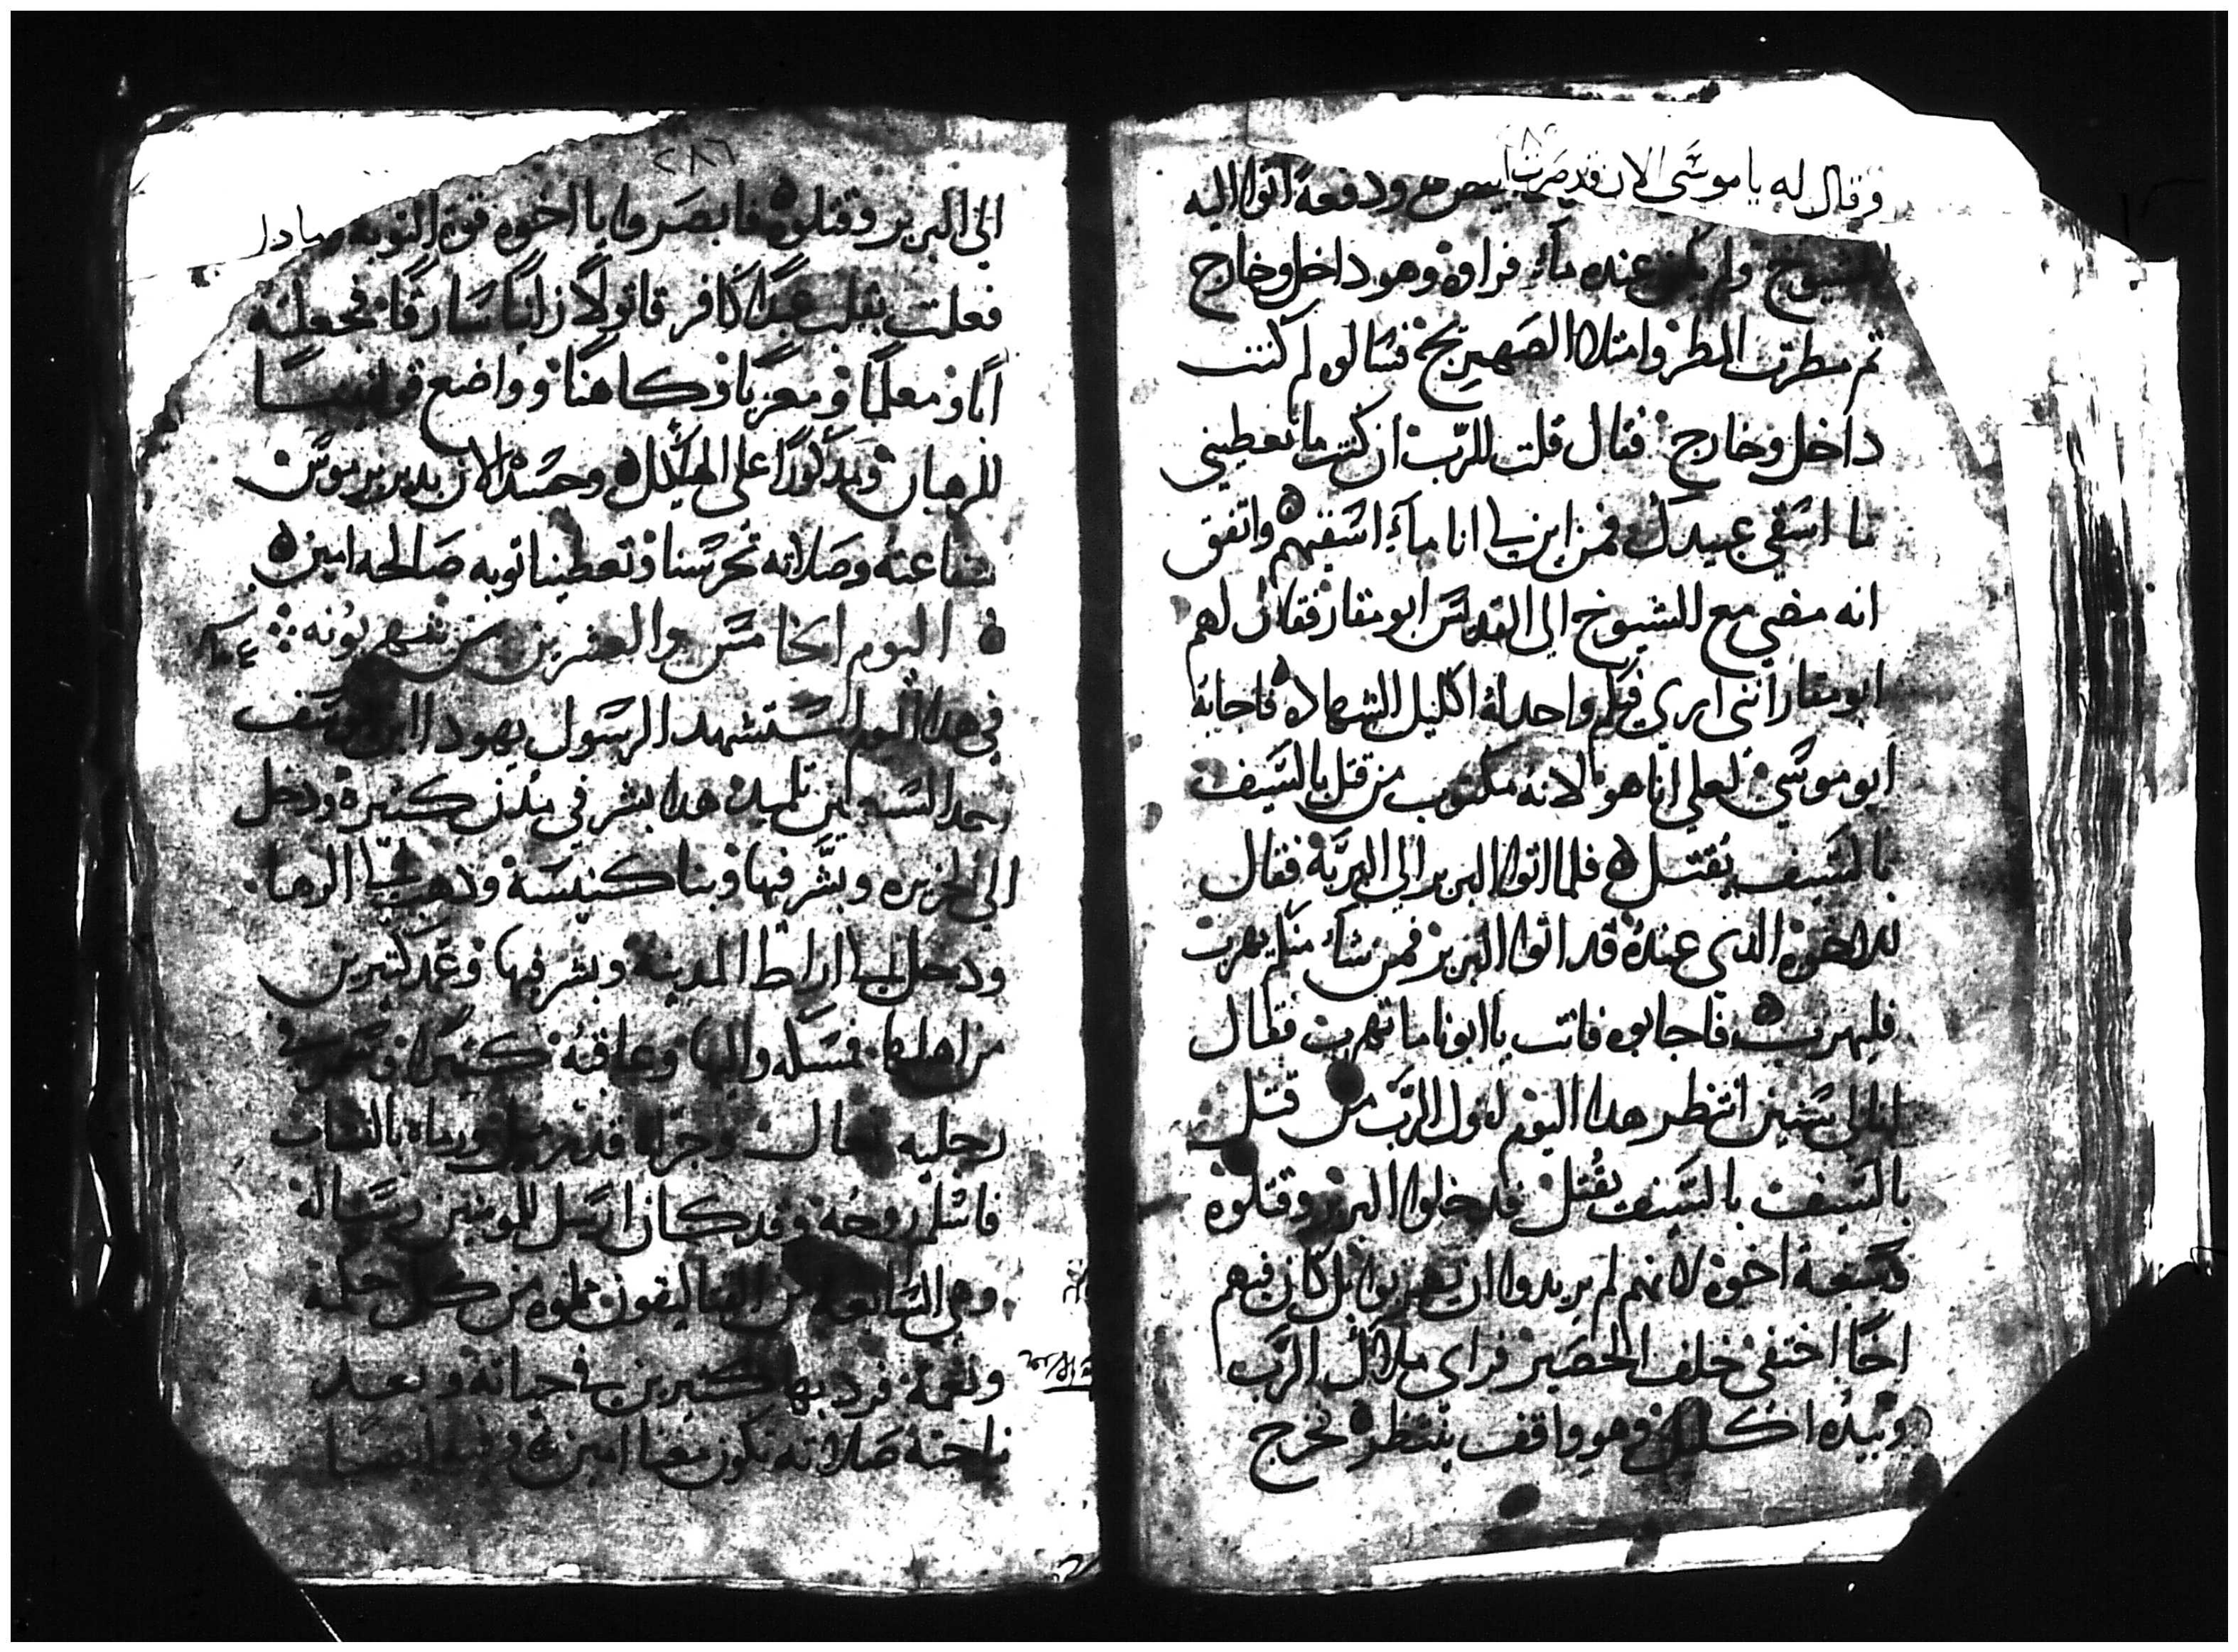 وقال له يا موسى الان قد صرت ابيض ودفعة اتوا اليه
الشيوخ ولم يكن عنده ماء فراوه وهو داخل وخارج
تم مطرت المطر وامتلا الصهريج فسالوه لم كنت
داخل وخارج فقال قلت للرب ان كنت ما تعطيني
ما اسقي عبيدك فمن اين لي انا ماء اسقيهم واتفق
انه مضي مع الشيوخ الي القديس ابو مقار فقال لهم
ابو مقار انني اري فيكم واحد له اكليل الشهاده فاجابه
ابو موسي لعلي انا هو لانه مكتوب من قتل بالسيف
بالسيف يقتل فلما اتوا البربر الي البرية فقال
للاخوه الذي عنده قد اتوا البربر فمن شاء منكم يهرب
فليهرب فاجابوه فانت يا ابونا ما تهرب فقال
انا لي سنين انتظر هدا اليوم لقول الرب من قتل
بالسيف بالسيف يقتل فدخلوا البربر وقتلوه
وسبعة اخوه لانهم لم يريدوا ان يهربوا بل كان فيهم
اخا اختفي خلف الحصير فراي ملاك الرب
وبيده اكليل وهو واقف ينتظره فخرج
٢٨٦
الي البربر وقتلوه فابصروا يا اخوه قوة التوبه وما دا
فعلت بقلب عبدا كافر قاتولا زانيا سارقا فجعلته
ابا ومعلما ومعزيا وكاهنا وواضع قوانينا
للرهبان ومدكورا على الهيكل وحسده الان بدير برموس
شفاعته وصلاته تحرسنا وتعطينا توبه صالحه امين
اليوم الخامس والعشرين من شهر بونه
في هدا اليوم استشهد الرسول يهودا ابن يوسف
احد السبعين تلميد هدا بشر في مدن كثيره ودخل
الي الجزيره وبشر فيها وبنا كنيسة ودهب الي الرها
ودخل الي اراط المدينة وبشر فيها وعمد كتيرين
من اهلها فمسكه واليها وعاقبه كثيرا وسمر في
رجليه نعال وجراه قدر ميل ورماه بالنشاب
فاسلم روحه وقد كان ارسل للمومنين رسالة
وهي السابعة من القتاليقون مملوه من كل حكمة
ونعمة فرد بها كثيرين في حياته وبعد
ناحته صلاته تكون معنا امين وفيه ايضا